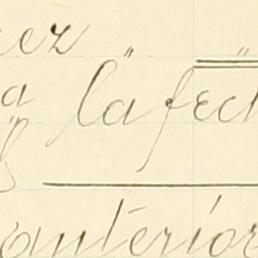 ez
a la fech
anterior